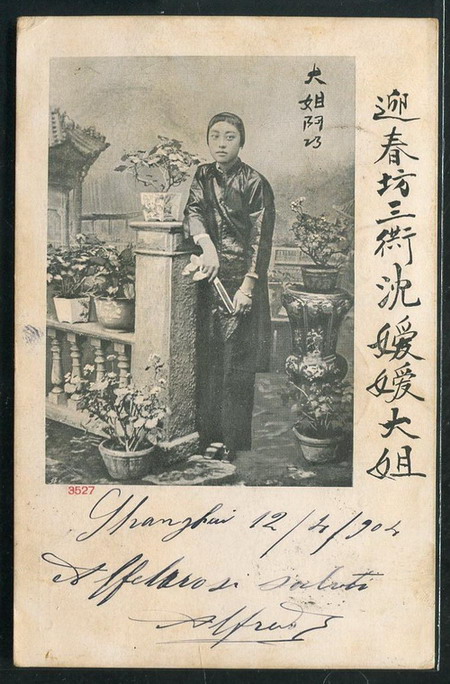 大
姐
阿
巧
迎春坊三衖沈媛媛大姐
3527
Shanghai 12/4/904
Affettuosi saluti
Alfredo